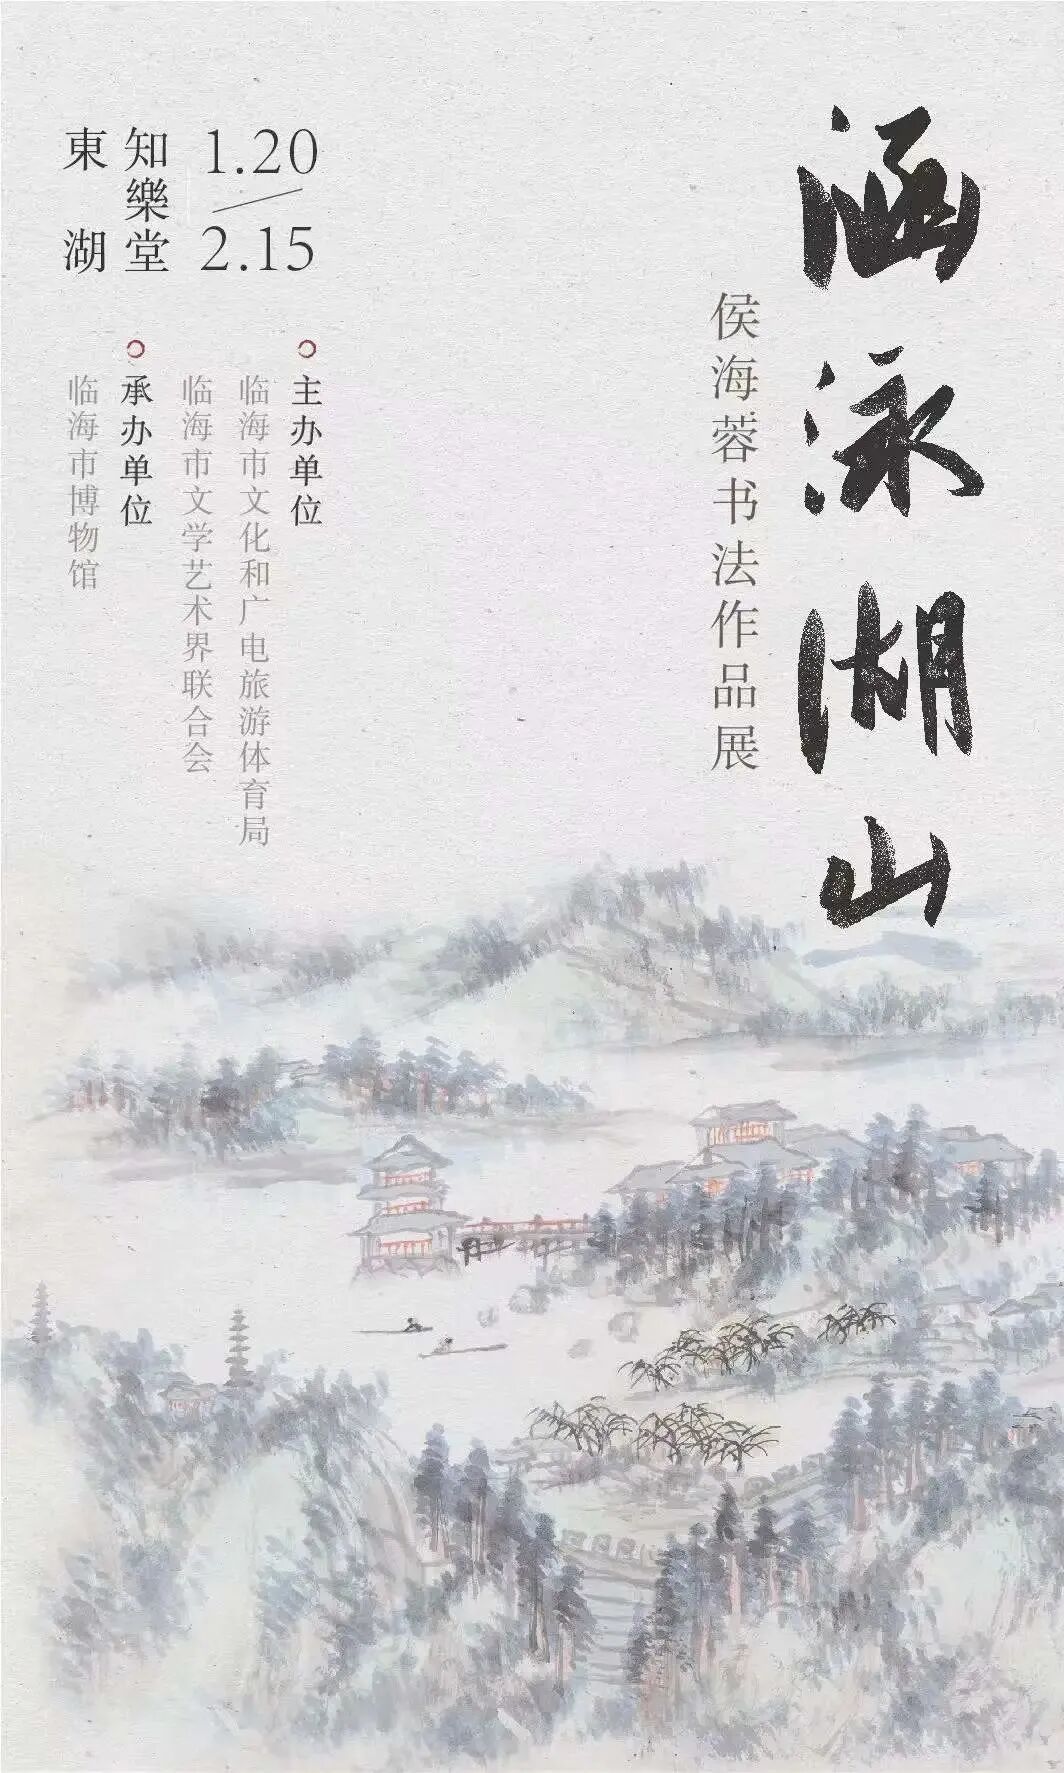 涵泳湖山
侯海蓉书法作品展
1.20
2.15
知樂堂
東湖
主办单位
临海市文化和广电旅游体育局
临海市文学艺术界联合会
承办单位
临海市博物馆